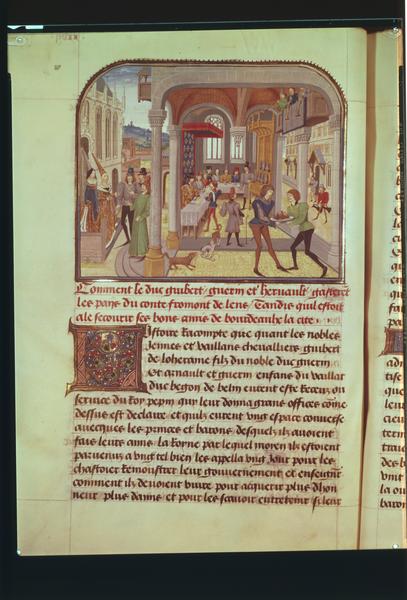 Comment le duc guibert guerin et hernault gasterent
les pays du conte fromont de lens / Tandis quil estoit
ale secourir ses bons amis de bourdeaulx la cite
Istoire racompte que quant les nobles
Jeunes et vaillans chevalliers guibert
de loheraine filz du noble duc guerin
Et arnault et guerin enfans du vaillant
duc begon de belin eurent este receuz ou
service du Roy pepin qui leur donna grans offices come
dessus est declaire et quilz eurent ung espace converse
avecques les princes et barons desquelz ilz avoient
fais leurs amis La Royne par lequel moien ilz estoient
parvenus a ung tel bien les appella ung Jour pour les
chastoier Remonstrer leur gouvernement et enseignier
comment ilz devoient vivre pour acquerir plus dhon
neur plus damis et pour les scavoir entretenir si leur